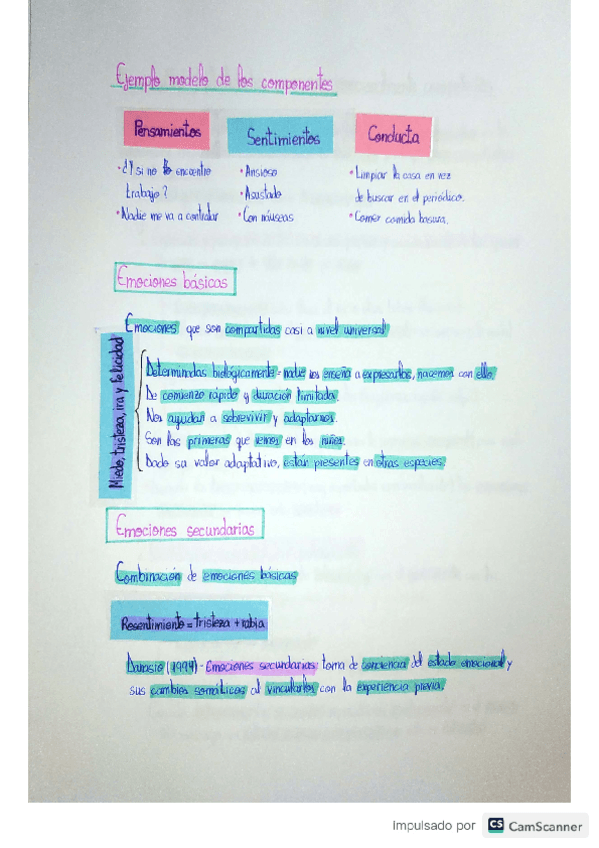 Ejemplo modelo de los componentes
Pensamientos
Sentimientos
Conducta
• ¿Y si no encuentro
trabajo?
• Nadie me va a contratar
• Ansioso
• Asustado
• Con náuseas
• Limpiar la casa en vez
de buscar en el periódico.
• Comer comida basura.
Emociones básicas
Emociones que son compartidas casi a nivel universal
Miedo, tristeza, ira y felicidad
Determinadas biológicamente = nadie nos enseña a expresarlas, nacemos con ello.
De comienzo rápido y duración limitada.
Nos ayudan a sobrevivir y adaptarnos.
Son las primeras que vemos en los niños.
Dado su valor adaptativo, están presentes en otras especies.
Emociones secundarias
Combinación de emociones básicas
Resentimiento = tristeza + rabia
Damasio (1994) - Emociones secundarias: toma de conciencia del estado emocional y
sus cambios somáticos al vincularlos con la experiencia previa.
Impulsado por CS CamScanner